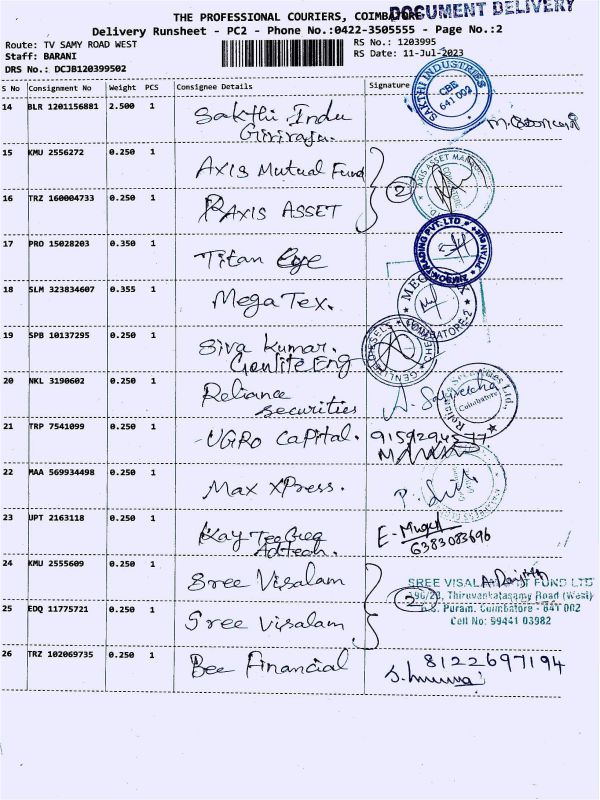 THE PROFESSIONAL COURIERS, COIMBATORE
DOCUMENT DELIVERY
Delivery Runsheet - PC2 - Phone No.:0422-3505555 - Page No.:2
Route: TV SAMY ROAD WEST
RS No.: 1203995
Staff: BARANI
RS Date: 11-Jul-2023
DRS No.: DCJB120399502
S No Consignment No Weight PCS Consignee Details Signature
14 BLR 1201156881 2.500 1 Sakthi Indu
Giriraja.
SAKTHI INDUSTRIES
CBE
641 002
15 KMU 2556272 0.250 1 Axis Mutual Fund
2
16 TRZ 160004733 0.250 1 AXIS ASSET
17 PRO 15028203 0.350 1 Titan Eye
18 SLM 323834607 0.355 1 Mega Tex.
COIMBATORE-2
19 SPB 10137295 0.250 1 Siva Kumar.
Genlite Eng
20 NKL 3190602 0.250 1 Reliance
Securities
Reliance Securities Ltd.
Coimbatore
21 TRP 7541099 0.250 1 UGRO Capital.
22 MAA 569934498 0.250 1 Max XPress.
23 UPT 2163118 0.250 1 Kay
Adtech.
6383083696
24 KMU 2555609 0.250 1 Sree Visalam
SREE VISALAM CHIT FUND LTD
196/28, Thiruvenkatasamy Road (West)
2
R.S. Puram, Coimbatore - 641 002
Cell No: 99441 03982
25 EDQ 11775721 0.250 1 Sree Visalam
26 TRZ 102069735 0.250 1 Bee Financial
8122697194